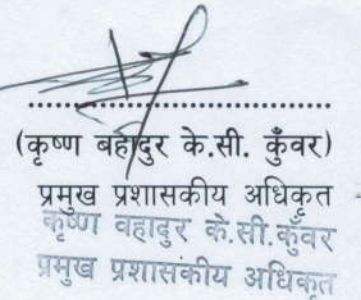 (कृष्ण बहादुर के.सी. कुँवर)
प्रमुख प्रशासकीय अधिकृत
कृष्ण वहादुर के.सी.कुँवर
प्रमुख प्रशासकीय अधिकृत